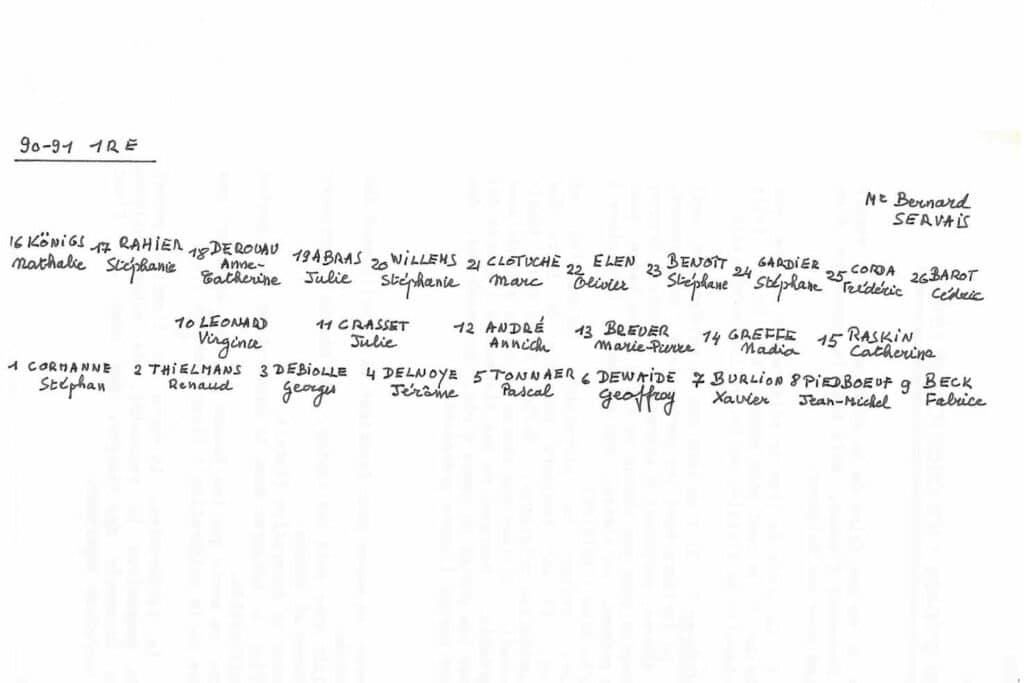 90-91 1RE
Mr Bernard
SERVAIS
16 KÖNIGS 17 RAHIER 18 DEROUAU 19 ABRAS 20 WILLEMS 21 CLOTUCHE 22 ELEN 23 BENOÎT 24 GARDIER 25 CORDA 26 BAROT
Nathalie Stéphanie Anne-Catherine Julie Stéphanie Marc Olivier Stéphane Stéphane Frédéric Cédric
10 LEONARD 11 CRASSET 12 ANDRÉ 13 BREUER 14 GREFFE 15 RASKIN
Virginie Julie Annick Marie-Pierre Nadia Catherine
1 CORMANNE 2 THIELMANS 3 DEBIOLLE 4 DELNOYE 5 TONNAER 6 DEWAIDE 7 BURLION 8 PIEDBOEUF 9 BECK
Stéphan Renaud Georges Jérôme Pascal Geoffroy Xavier Jean-Michel Fabrice